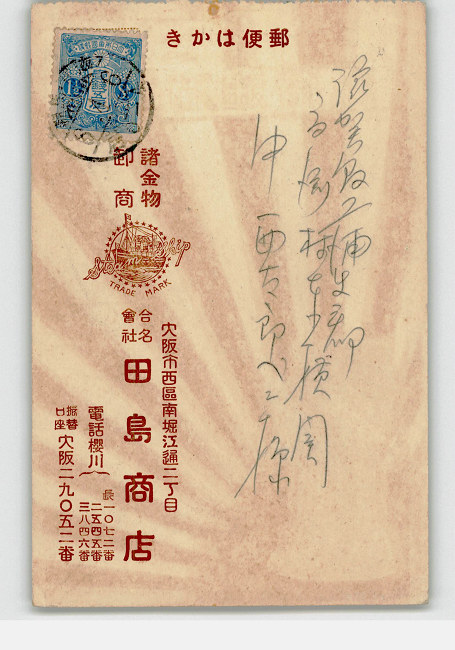 きかは便郵
滋賀縣蒲生郡
村東横関
中西太郎
諸金物
卸商
Steam Ship
TRADE MARK
大阪市西區南堀江通二丁目
合名
會社
田島商店
電話櫻川
長一〇七二番
二五四五番
三八四六番
振替
口座
大阪二九〇五二番